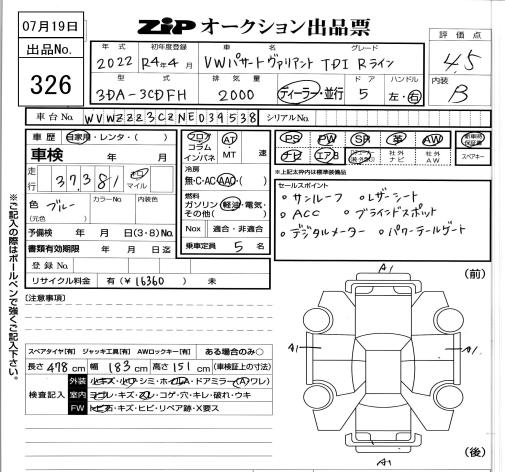 07月19日
出品No.
326
ZIP オークション出品票
評価点
4.5
内装
B
年式 初年度登録 車名 グレード
2022 R4年4月 VWパサートヴァリアント TDI Rライン
型式 排気量 ドア ハンドル
3DA-3CDFH 2000 ディーラー・並行 5 左・右
車台No. WVWZZZ3CZNE039538 シリアルNo.
車歴 自家用・レンタ・( )
車検 年 月
走行 37,381 km マイル
色 ブルー カラーNo. 内装色
(元色)
予備検 年 月 日(3・8)No.
書類有効期限 年 月 日
登録No.
リサイクル料金 有(¥16360) 未
フロア コラム インパネ
AT・MT 速
冷房
無・C・AC・AAC・( )
燃料
ガソリン・軽油・電気・その他( )
Nox 適合・非適合
乗車定員 5 名
PS PW SR 革 AW 新車時保証書
ナビ エアB 社外ナビ 社外AW スペアキー
※上記太枠内は標準装備品
セールスポイント
・サンルーフ ・レザーシート
・ACC ・ブラインドスポット
・デジタルメーター ・パワーテールゲート
※ご記入の際はボールペンで強くご記入下さい。
[注意事項]
スペアタイヤ[有] ジャッキ工具[有] AWロックキー[有] ある場合のみ○
長さ 478 cm 幅 183 cm 高さ 151 cm (車検証上の寸法)
検査記入
外装 小キズ・小凹・シミ・ホイルA・ドアミラー(A)ワレ)
室内 ヨゴレ・キズ・スレ・コゲ・穴・キレ・破れ・ウキ
FW トビ石・キズ・ヒビ・リペア跡・X要ス
(前)
A1
A1
A1
A1
(後)